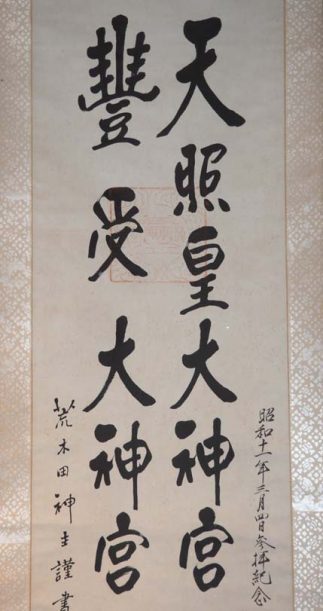 昭和十一年三月四日参拝紀念
天照皇大神宮
豐受大神宮
荒木田神主謹書